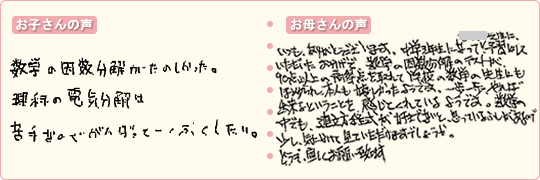 お子さんの声
数学の因数分解がたのしかった。
理科の電気分解は
苦手なのでがんばってこくふくしたい。
お母さんの声
いつも、ありがとうございます。中学3年生になって予習をして
いただいたおかげで、数学の因数分解のテストが
90点以上の高得点を取れて学校の数学の先生にも
ほめられ、本人も嬉しかったようです。一歩一歩やれば
出来るということを感じてくれているようです。数学の
中でも、連立方程式が好きではないと、思っているふしがあるので
少し、気にかけて見ていただけますでしょうか。
どうぞ、宜しくお願い致します